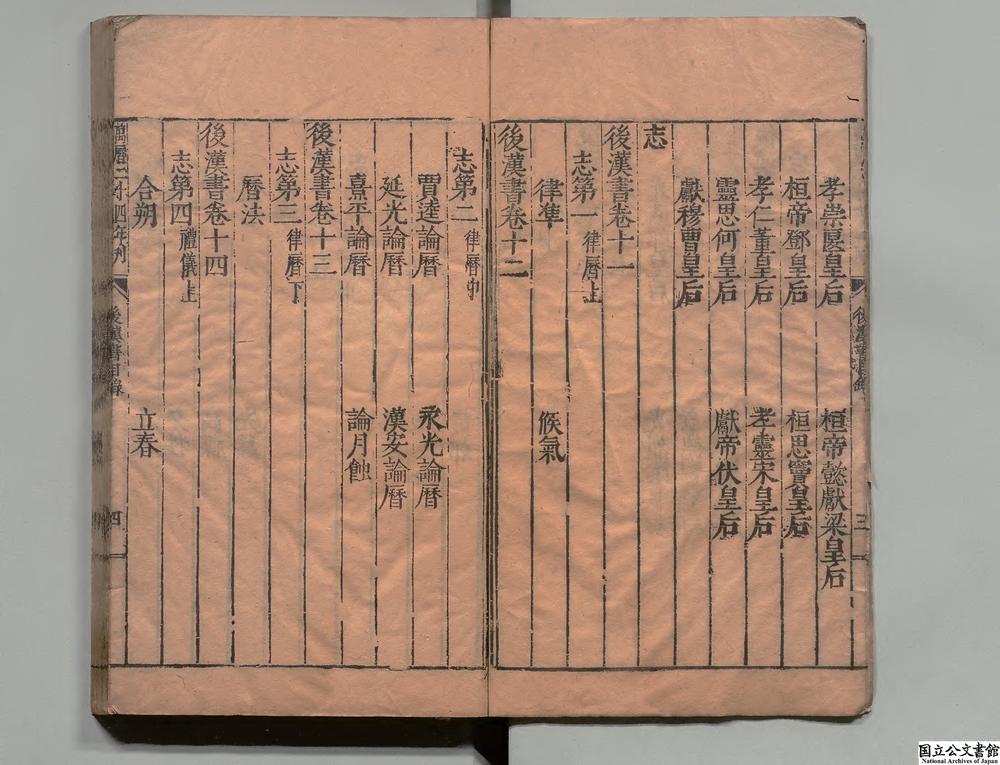 孝崇匽皇后 桓帝懿獻梁皇后
桓帝鄧皇后 桓思竇皇后
孝仁董皇后 孝靈宋皇后
靈思何皇后 獻帝伏皇后
獻穆曹皇后
志
後漢書卷十一
志第一 律曆上
律準 候氣
後漢書卷十二
志第二 律曆中
賈逵論曆 永光論曆
延光論曆 漢安論曆
熹平論曆 論月蝕
後漢書卷十三
志第三 律曆下
曆法
後漢書卷十四
志第四 禮儀上
合朔 立春
萬曆二十四年刊 後漢書目錄 四
国立公文書館
National Archives of Japan